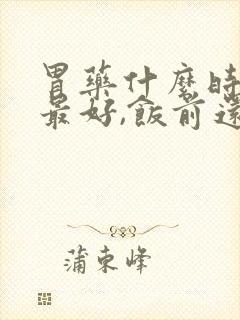 胃藥什麼時
最好,飯前還
蒲東峰